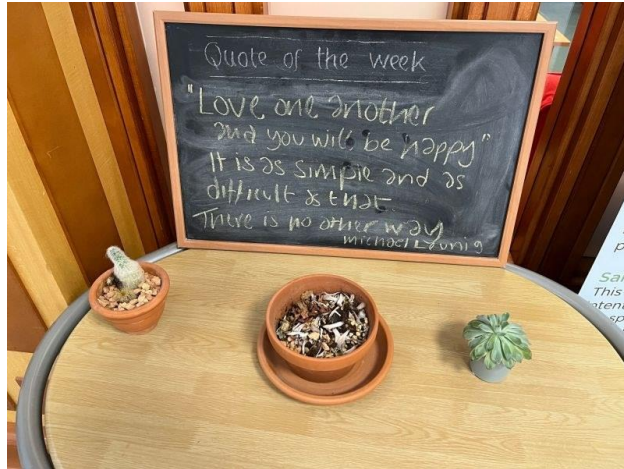 Quote of the week
"Love one another
and you will be happy"
It is as simple and as
difficult as that
There is no other way
Michael Leunig
This